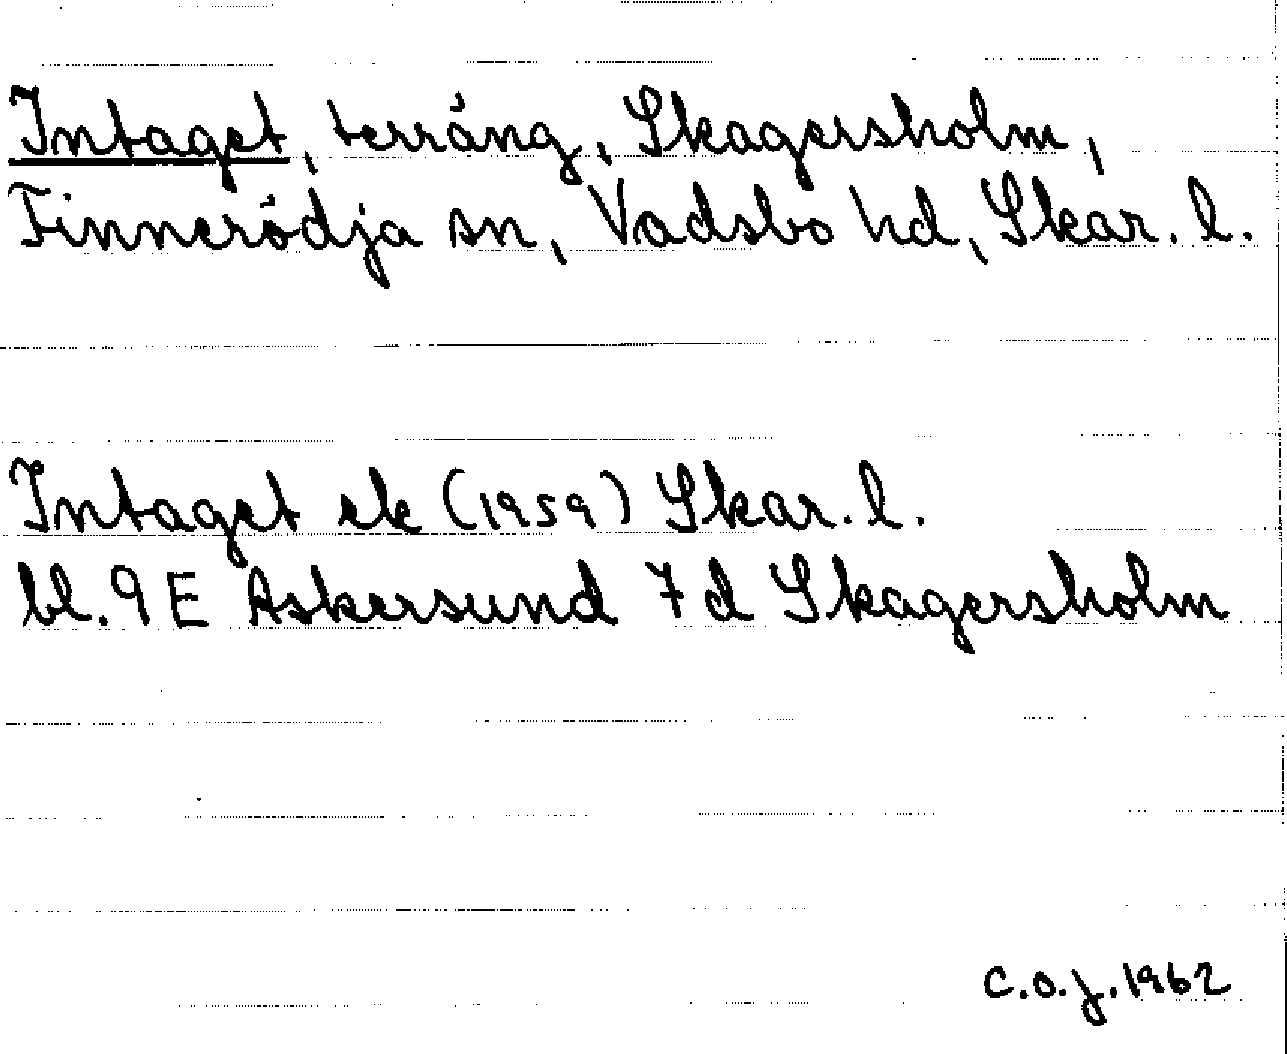 Intaget, terräng, Skagersholm,
Finnerödja sn, Vadsbo hd, Skar. l.
Intaget ek (1959) Skar. l.
bl. 9 E Askersund 7 d Skagersholm
C.O.J. 1962